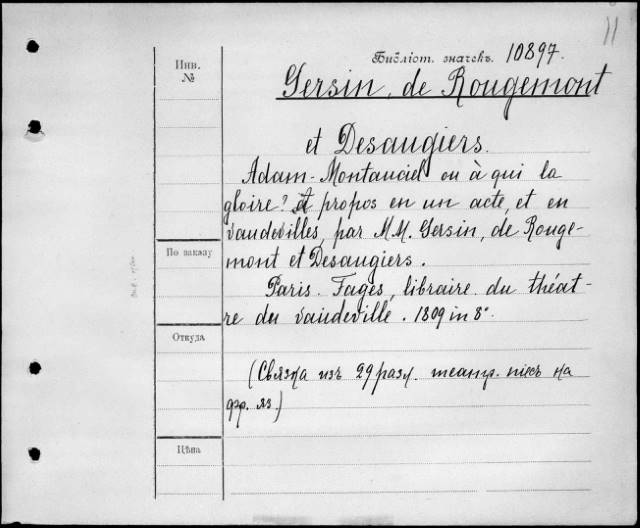 11
Инв.
№
Библіот. значекъ. 10897.
Gersin, de Rougemont
et Desaugiers.
Adam-Montauciel ou à qui la
gloire? A propos en un acte, et en
vaudevilles, par M.M. Gersin, de Rouge-
По заказу
mont et Desaugiers.
Paris. Fages, libraire du théat-
re du vaudeville. 1809 in 8°.
Откуда
(Связка изъ 29 разл. театр. пiесъ на
фр. яз.)
Цѣна